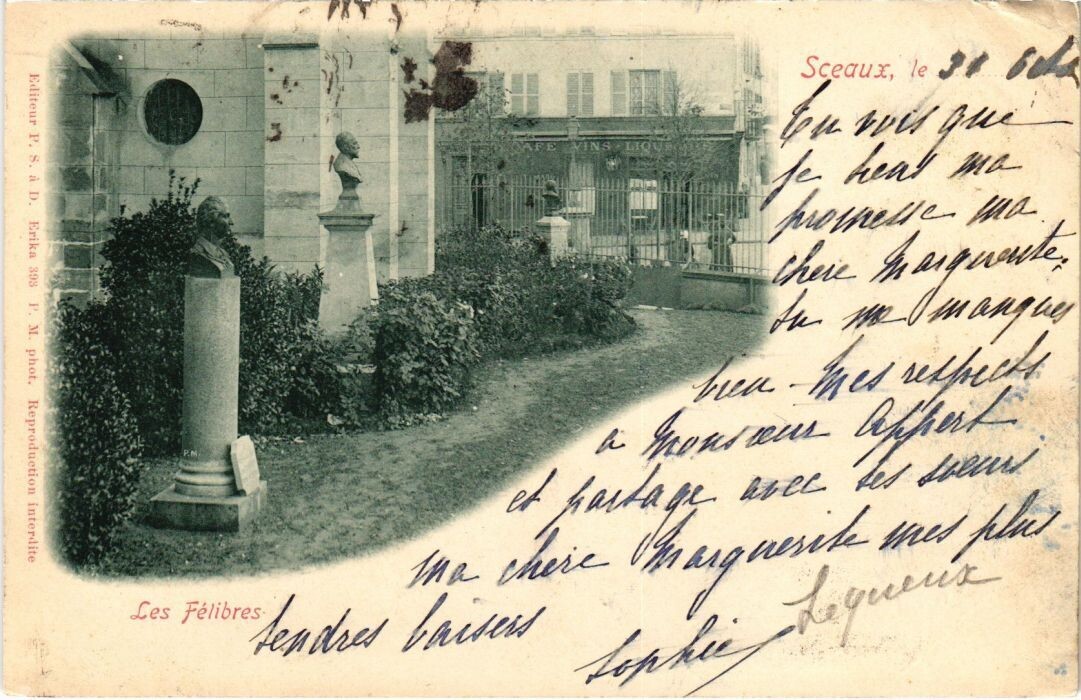 Sceaux, le 31 Octo
Tu vois que
je tiens ma
promesse ma
chère Marguerite,
tu me manques
bien - Mes respects
à Monsieur Appert
et partage avec tes sœurs
ma chère Marguerite mes plus
tendres baisers
Sophie Lequeux
Les Félibres
CAFE VINS-LIQUEURS
P.M
Editeur P. S. à D. Erika 393 P. M. phot. Reproduction interdite